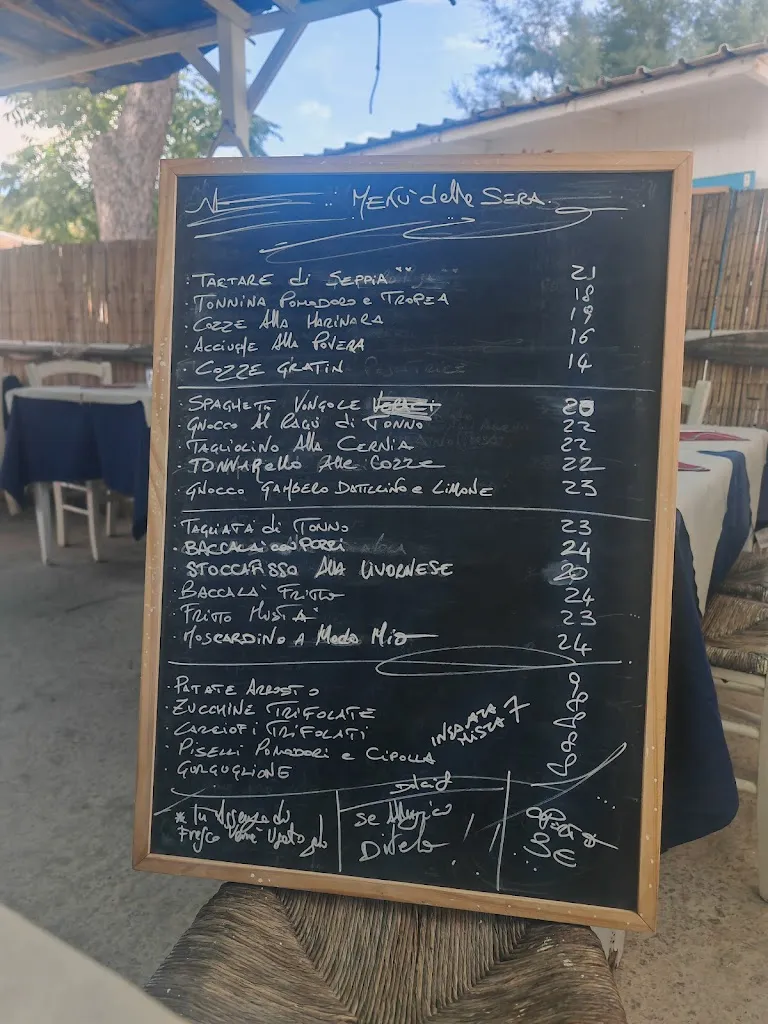 Menù della Sera
· Tartare di Seppia 21
· Tonnina Pomodoro e Tropea 18
· Cozze Alla Marinara 19
· Acciughe Alla Povera 16
· Cozze Gratin 14
· Spaghetto Vongole 20
· Gnocco Al Ragù di Tonno 22
· Tagliolino Alla Cernia 22
· Tonnarello Alle Cozze 22
· Gnocco Gambero Datterino e Limone 23
· Tagliata di Tonno 23
· Baccalà con Porri 24
· Stoccafisso Alla Livornese 20
· Baccalà Fritto 24
· Fritto Mistà 23
· Moscardino a Modo Mio 24
· Patate Arrosto
· Zucchine Trifolate
· Carciofi Trifolati
· Piselli Pomodori e Cipolla
· Gurguglione
Insalata Mista 7
Dolci
se Allergico
Ditelo !!
3 €